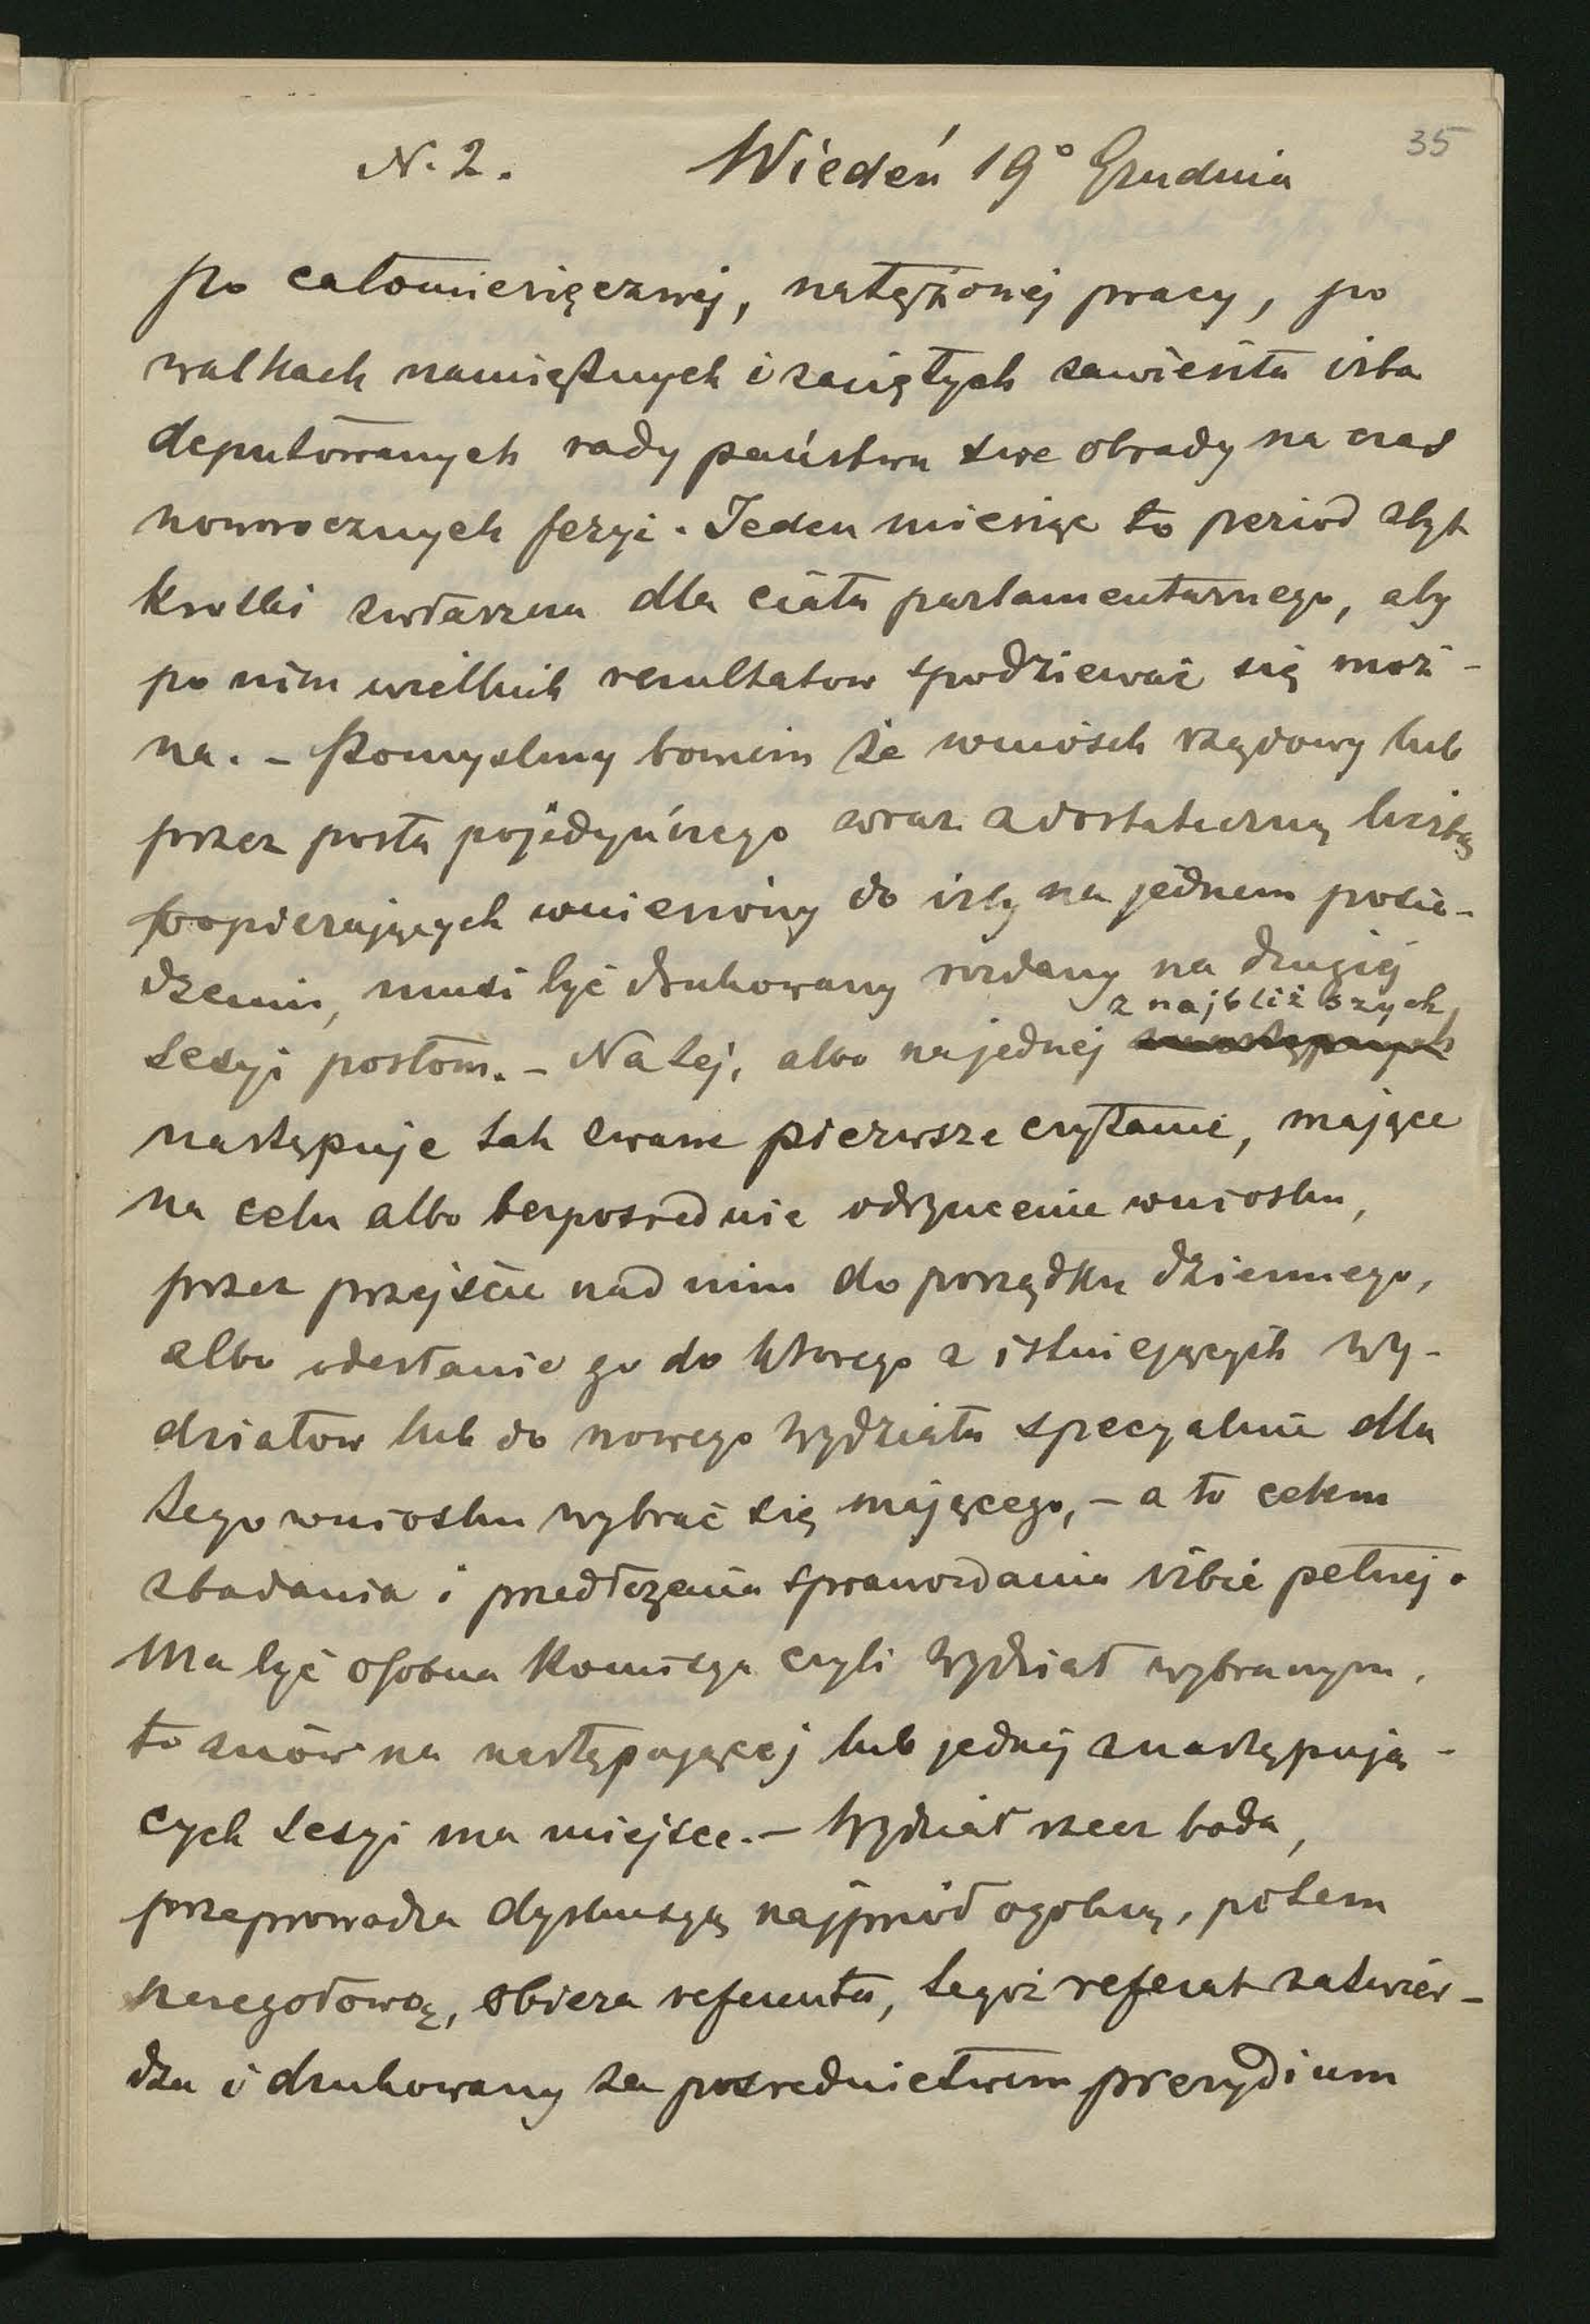 35
N. 2. Wiedeń 19° Grudnia
Po całomiesięcznej, natężonej pracy, po
walkach namiętnych i zaciętych zawiesiła izba
deputowanych rady państwa swe obrady na czas
noworocznych feryi. Jeden miesiąc to period zbyt
krotki zwłaszcza dla ciała parlamentarnego, aby
po nim wielkich rezultatow spodziewać się moż-
na. – Pomyslmy bowiem że wniosek rządowy lub
przez posła pojedyńczego wraz z dostateczną liczbą
popierających wniesiony do izby na jednem posie-
dzeniu, musi być drukowany rozdany na drugiej
z najbliższych
sesyi posłom. – Na tej, albo na jednej z następnych
następuje tak zwane pierwsze czytanie, mające
na celu albo bezposrednie odrzucenie wniosku,
przez przejście nad nim do porządku dziennego,
albo odesłanie go do ktorego z istniejących wy-
działow lub do nowego wydziału specyalnie dla
tego wniosku wybrać się mającego, – a to celem
zbadania i przedłożenia sprawozdania izbie pełnej.
Ma być osobna komisya czyli wydział wybranym,
to znów na następującej lub jednej z następują-
cych sesyi ma miejsce. – Wydział rzecz bada,
przeprowadza dyskusyą najprzód ogolną, potem
szczegołową, obiera referenta, tegoż referat zatwier-
dza i drukowany za posrednictwem prezydium